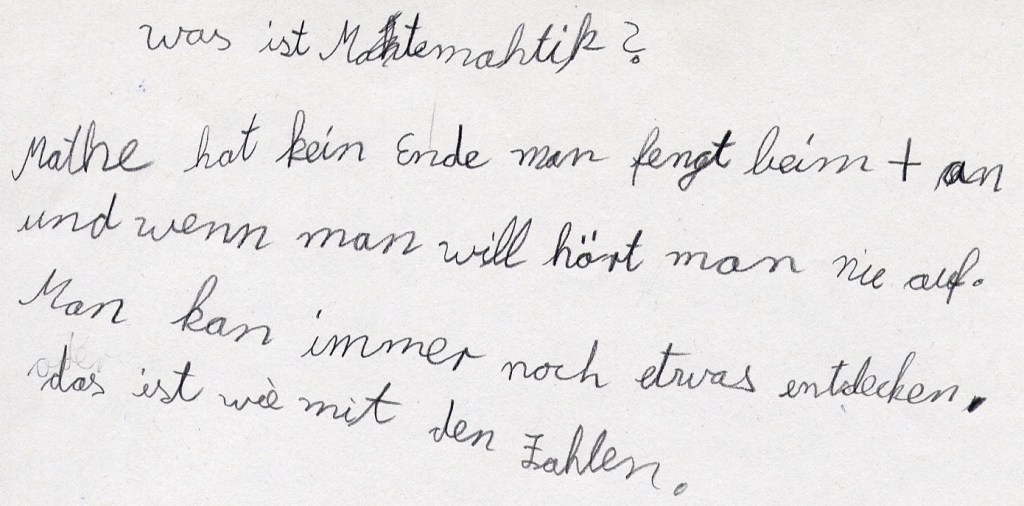 was ist Mahtemahtik?
Mathe hat kein Ende man fengt beim + an
und wenn man will hört man nie auf.
Man kan immer noch etwas entdecken.
das ist wie mit den Zahlen.